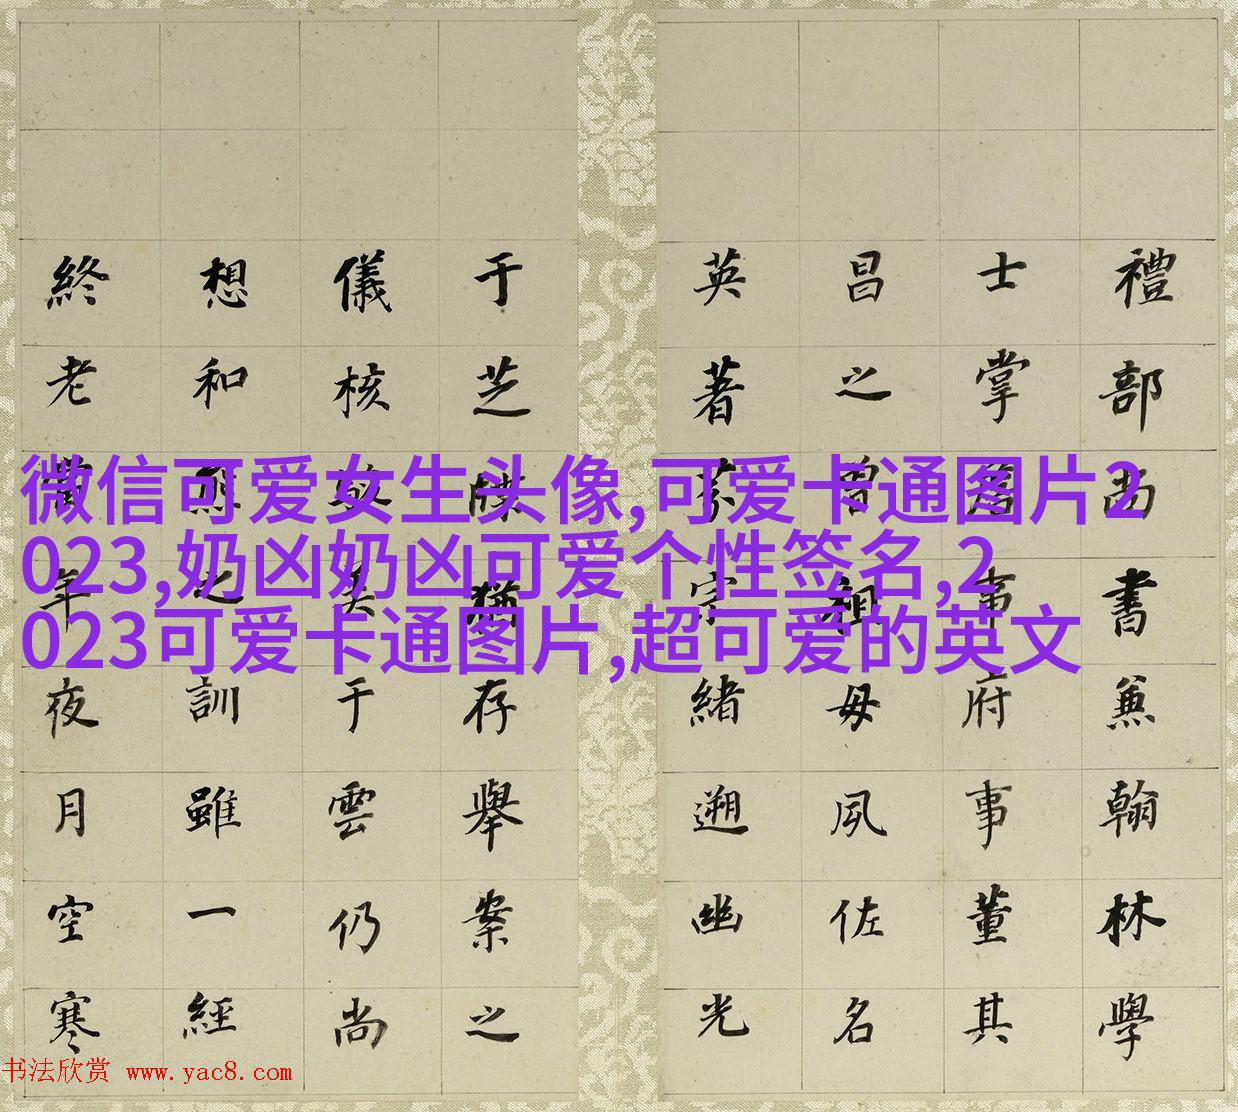 微信可爱女生头像,可爱卡通图片2
023,奶凶奶凶可爱个性签名,2
023可爱卡通图片,超可爱的英文
禮部尚書兼翰林學
士掌事府事董其
昌之曾祖母夙佐名
英著字緒遡幽光
于芝猶存舉案之
儀核美于雲仍尚
想和熊之訓雖一經
終老年夜月空寒
书法欣赏 www.yac8.com